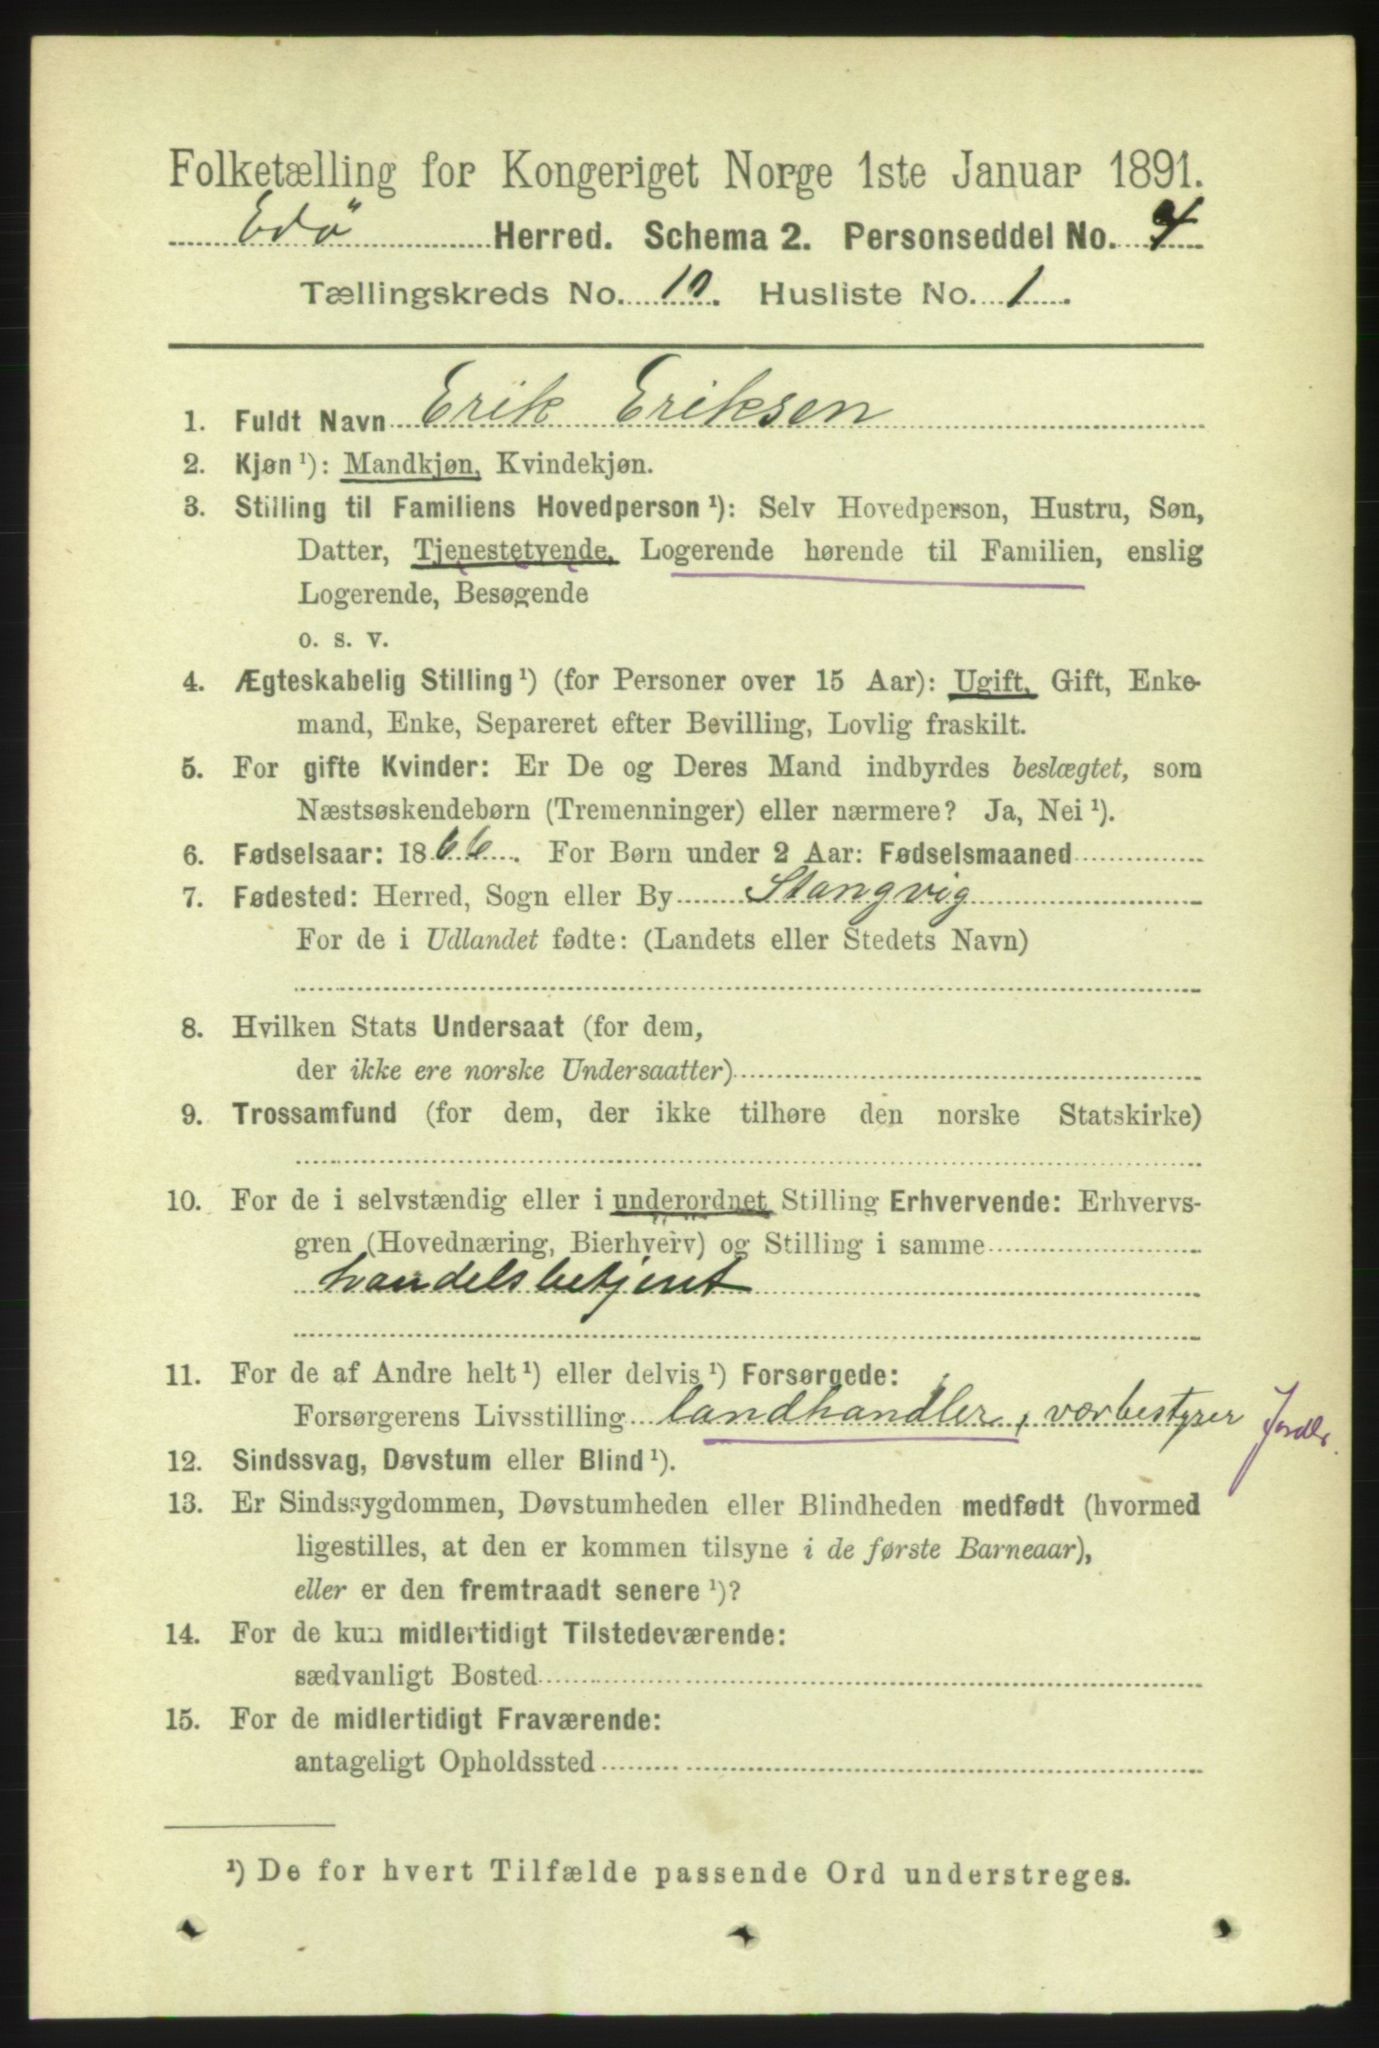 Folketælling for Kongeriget Norge 1ste Januar 1891.
Edø Herred. Schema 2. Personseddel No. 4
Tællingskreds No. 10. Husliste No. 1.
1. Fuldt Navn Erik Eriksen
2. Kjøn ¹): Mandkjøn, Kvindekjøn.
3. Stilling til Familiens Hovedperson ¹): Selv Hovedperson, Hustru, Søn,
Datter, Tjenestetyende, Logerende hørende til Familien, enslig
Logerende, Besøgende
o. s. v.
4. Ægteskabelig Stilling ¹) (for Personer over 15 Aar): Ugift, Gift, Enke-
mand, Enke, Separeret efter Bevilling, Lovlig fraskilt.
5. For gifte Kvinder: Er De og Deres Mand indbyrdes beslægtet, som
Næstsøskendebørn (Tremenninger) eller nærmere? Ja, Nei ¹).
6. Fødselsaar: 1866. For Børn under 2 Aar: Fødselsmaaned
7. Fødested: Herred, Sogn eller By Stangvig
For de i Udlandet fødte: (Landets eller Stedets Navn)
8. Hvilken Stats Undersaat (for dem,
der ikke ere norske Undersaatter)
9. Trossamfund (for dem, der ikke tilhøre den norske Statskirke)
10. For de i selvstændig eller i underordnet Stilling Erhvervende: Erhvervs-
gren (Hovednæring, Bierhverv) og Stilling i samme
handelsbetjent
11. For de af Andre helt ¹) eller delvis ¹) Forsørgede:
Forsørgerens Livsstilling landhandler, værbestyrer
12. Sindssvag, Døvstum eller Blind ¹).
13. Er Sindssygdommen, Døvstumheden eller Blindheden medfødt (hvormed
ligestilles, at den er kommen tilsyne i de første Barneaar),
eller er den fremtraadt senere ¹)?
14. For de kun midlertidigt Tilstedeværende:
sædvanligt Bosted
15. For de midlertidigt Fraværende:
antageligt Opholdssted
¹) De for hvert Tilfælde passende Ord understreges.